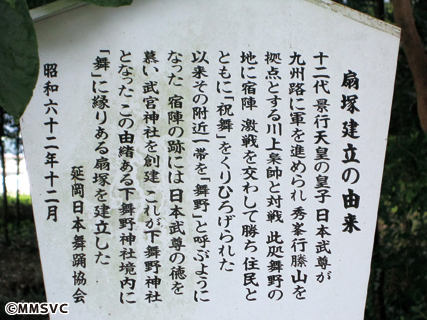 扇塚建立の由来
十二代 景行天皇の皇子 日本武尊が
九州路に軍を進められ 秀峯行縢山を
拠点とする川上梟帥と対戦 此処舞野の
地に宿陣 激戦を交わして勝ち住民と
ともに「祝舞」をくりひろげられた
以来その附近一帯を「舞野」と呼ぶように
なった 宿陣の跡には日本武尊の徳を
慕い 武宮神社を創建 これが下舞野神社
となった この由緒ある下舞野神社境内に
「舞」に縁りある扇塚を建立した
昭和六十二年十二月
延岡日本舞踊協会
©MMSVC